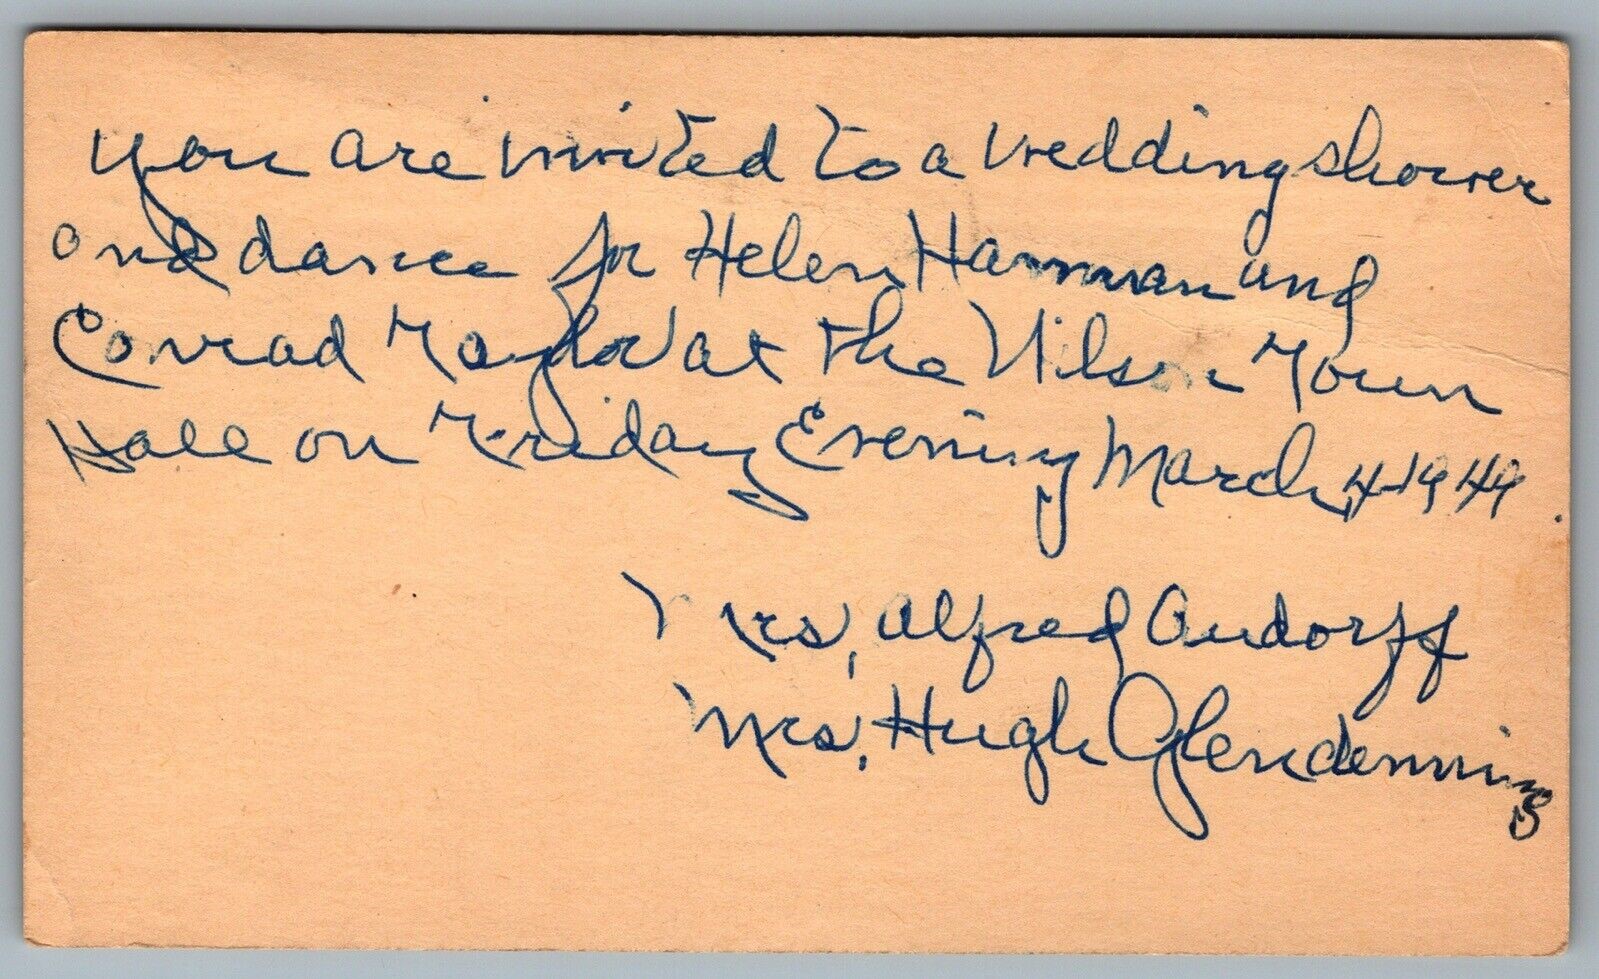 you are invited to a wedding shower
and dance for Helen Harman and
Conrad Taylor at the Wilson Town
Hall on Friday Evening March 4-1949
Mrs, Alfred Audorff
Mrs, Hugh Glendenning